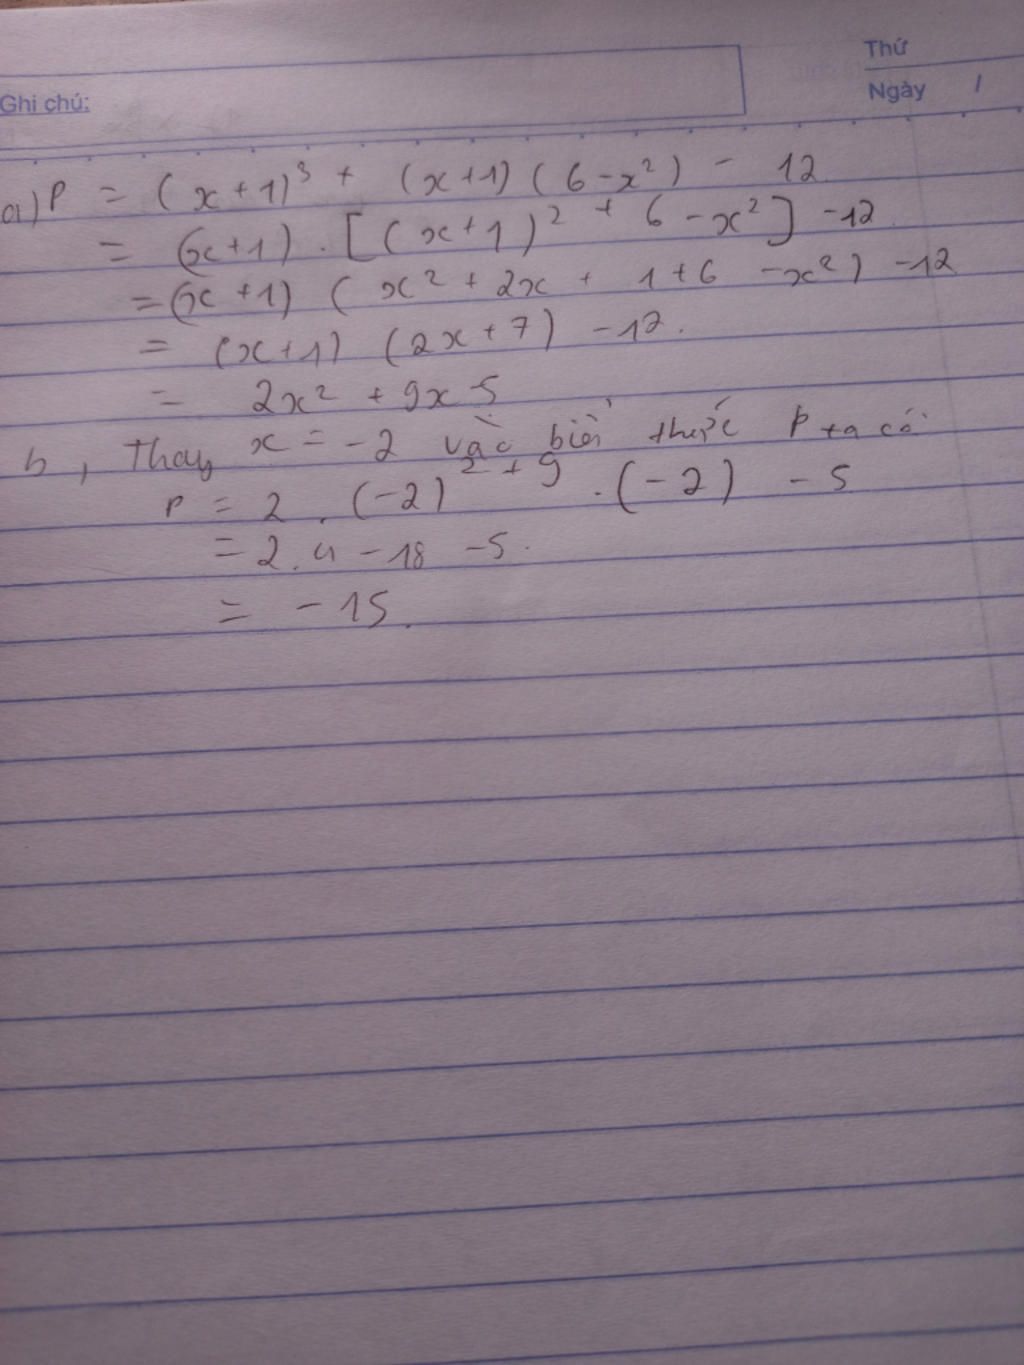 Thứ
Ghi chú:
Ngày /
a) P = (x+1)³ + (x+1) (6-x²) - 12
= (x+1) . [(x+1)² + 6 - x²] -12
= (x+1) (x² + 2x + 1+6 -x²) -12
= (x+1) (2x+7) -12.
= 2x² + 9x-5
b, Thay x = -2 vào biểu thức P ta có
P = 2 . (-2)² + 9 . (-2) - 5
= 2.4 - 18 -5.
= -15.